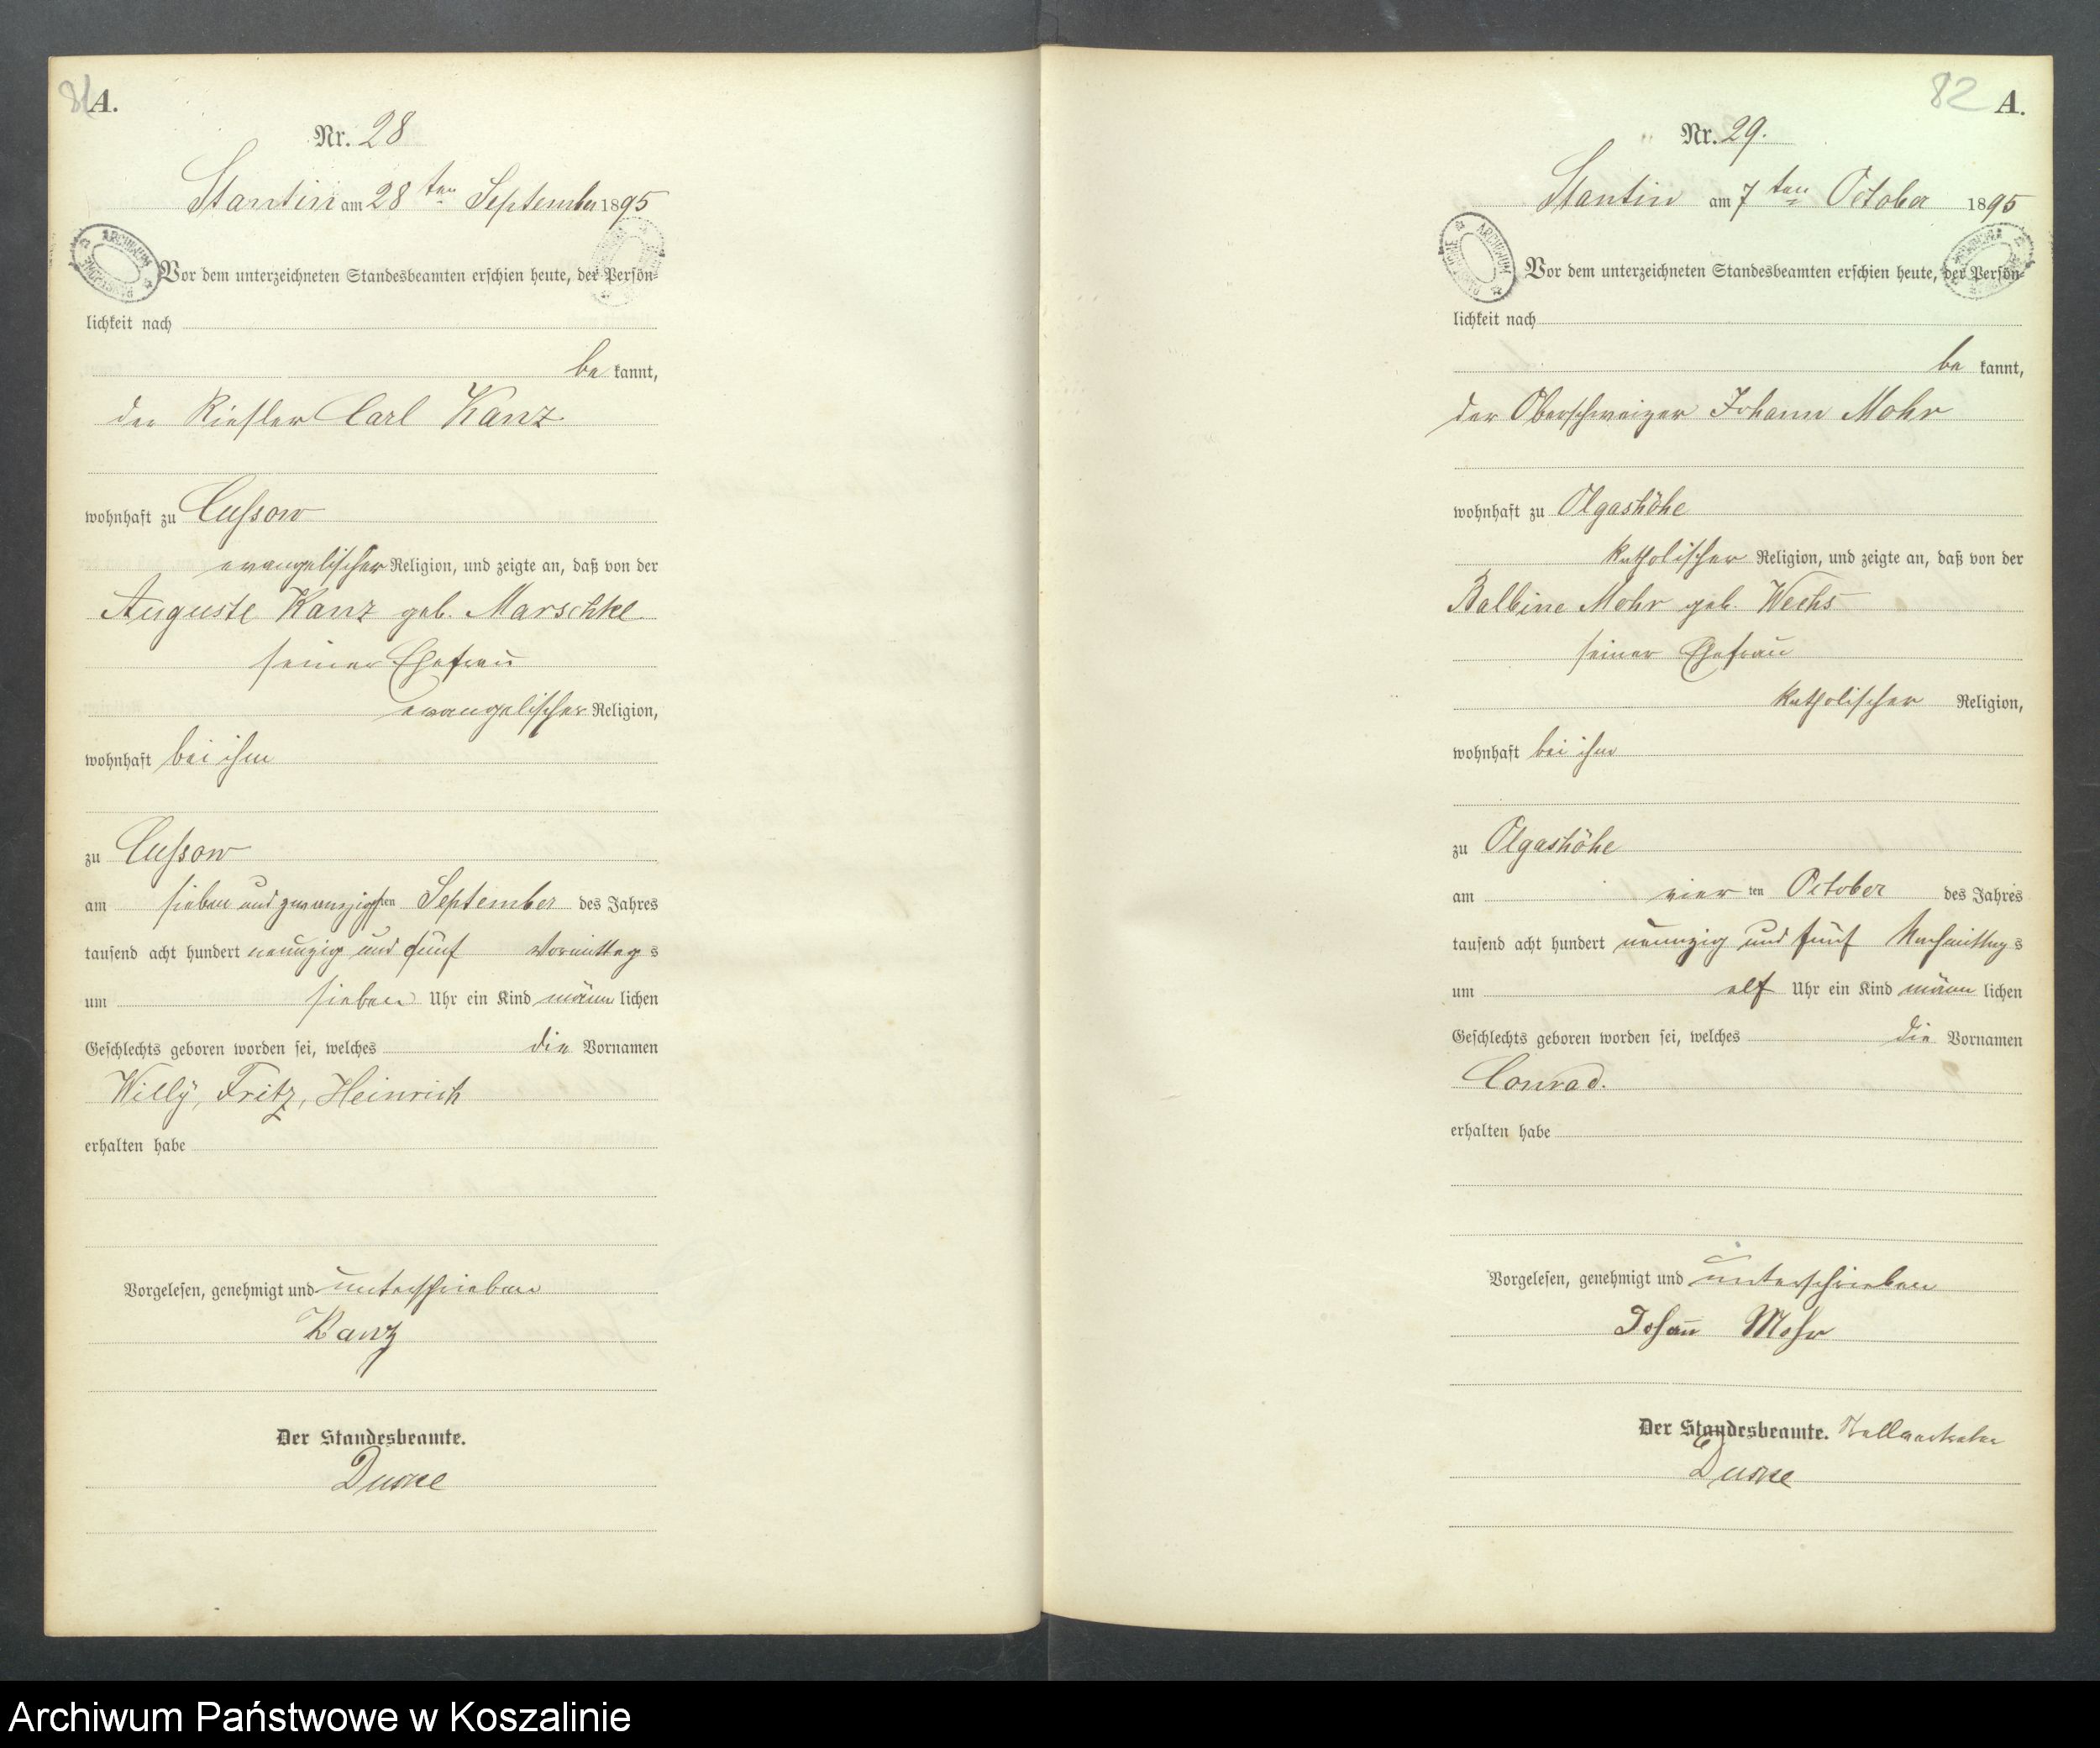 81
A.
Nr. 28
Stantin am 28 ten September 1895
Vor dem unterzeichneten Standesbeamten erschien heute, der Persön-
lichkeit nach
be kannt,
der Riesler Carl Kanz
wohnhaft zu Cussow
evangelischer Religion, und zeigte an, daß von der
Auguste Kanz geb. Marschke
seiner Ehefrau
evangelischer Religion,
wohnhaft bei ihm
zu Cussow
am sieben und zwanzigsten September des Jahres
tausend acht hundert neunzig und fünf Vormittag s
um sieben Uhr ein Kind männ lichen
Geschlechts geboren worden sei, welches die Vornamen
Willy, Fritz, Heinrich
erhalten habe
Vorgelesen, genehmigt und unterschrieben
Kanz
Der Standesbeamte.
82
A.
Nr. 29.
Stantin am 7 ten October 1895
ARCHIWUM
Vor dem unterzeichneten Standesbeamten erschien heute, der Persön-
lichkeit nach
be kannt,
der Oberschweizer Johann Mohr
wohnhaft zu Olgashöhe
katholischer Religion, und zeigte an, daß von der
Balbine Mohr geb. Wechs
seiner Ehefrau
katholischer Religion,
wohnhaft bei ihm
zu Olgashöhe
am vier ten October des Jahres
tausend acht hundert neunzig und fünf Nachmittag s
um elf Uhr ein Kind männ lichen
Geschlechts geboren worden sei, welches die Vornamen
Conrad.
erhalten habe
Vorgelesen, genehmigt und unterschrieben
Johann Mohr
Der Standesbeamte.
Archiwum Państwowe w Koszalinie